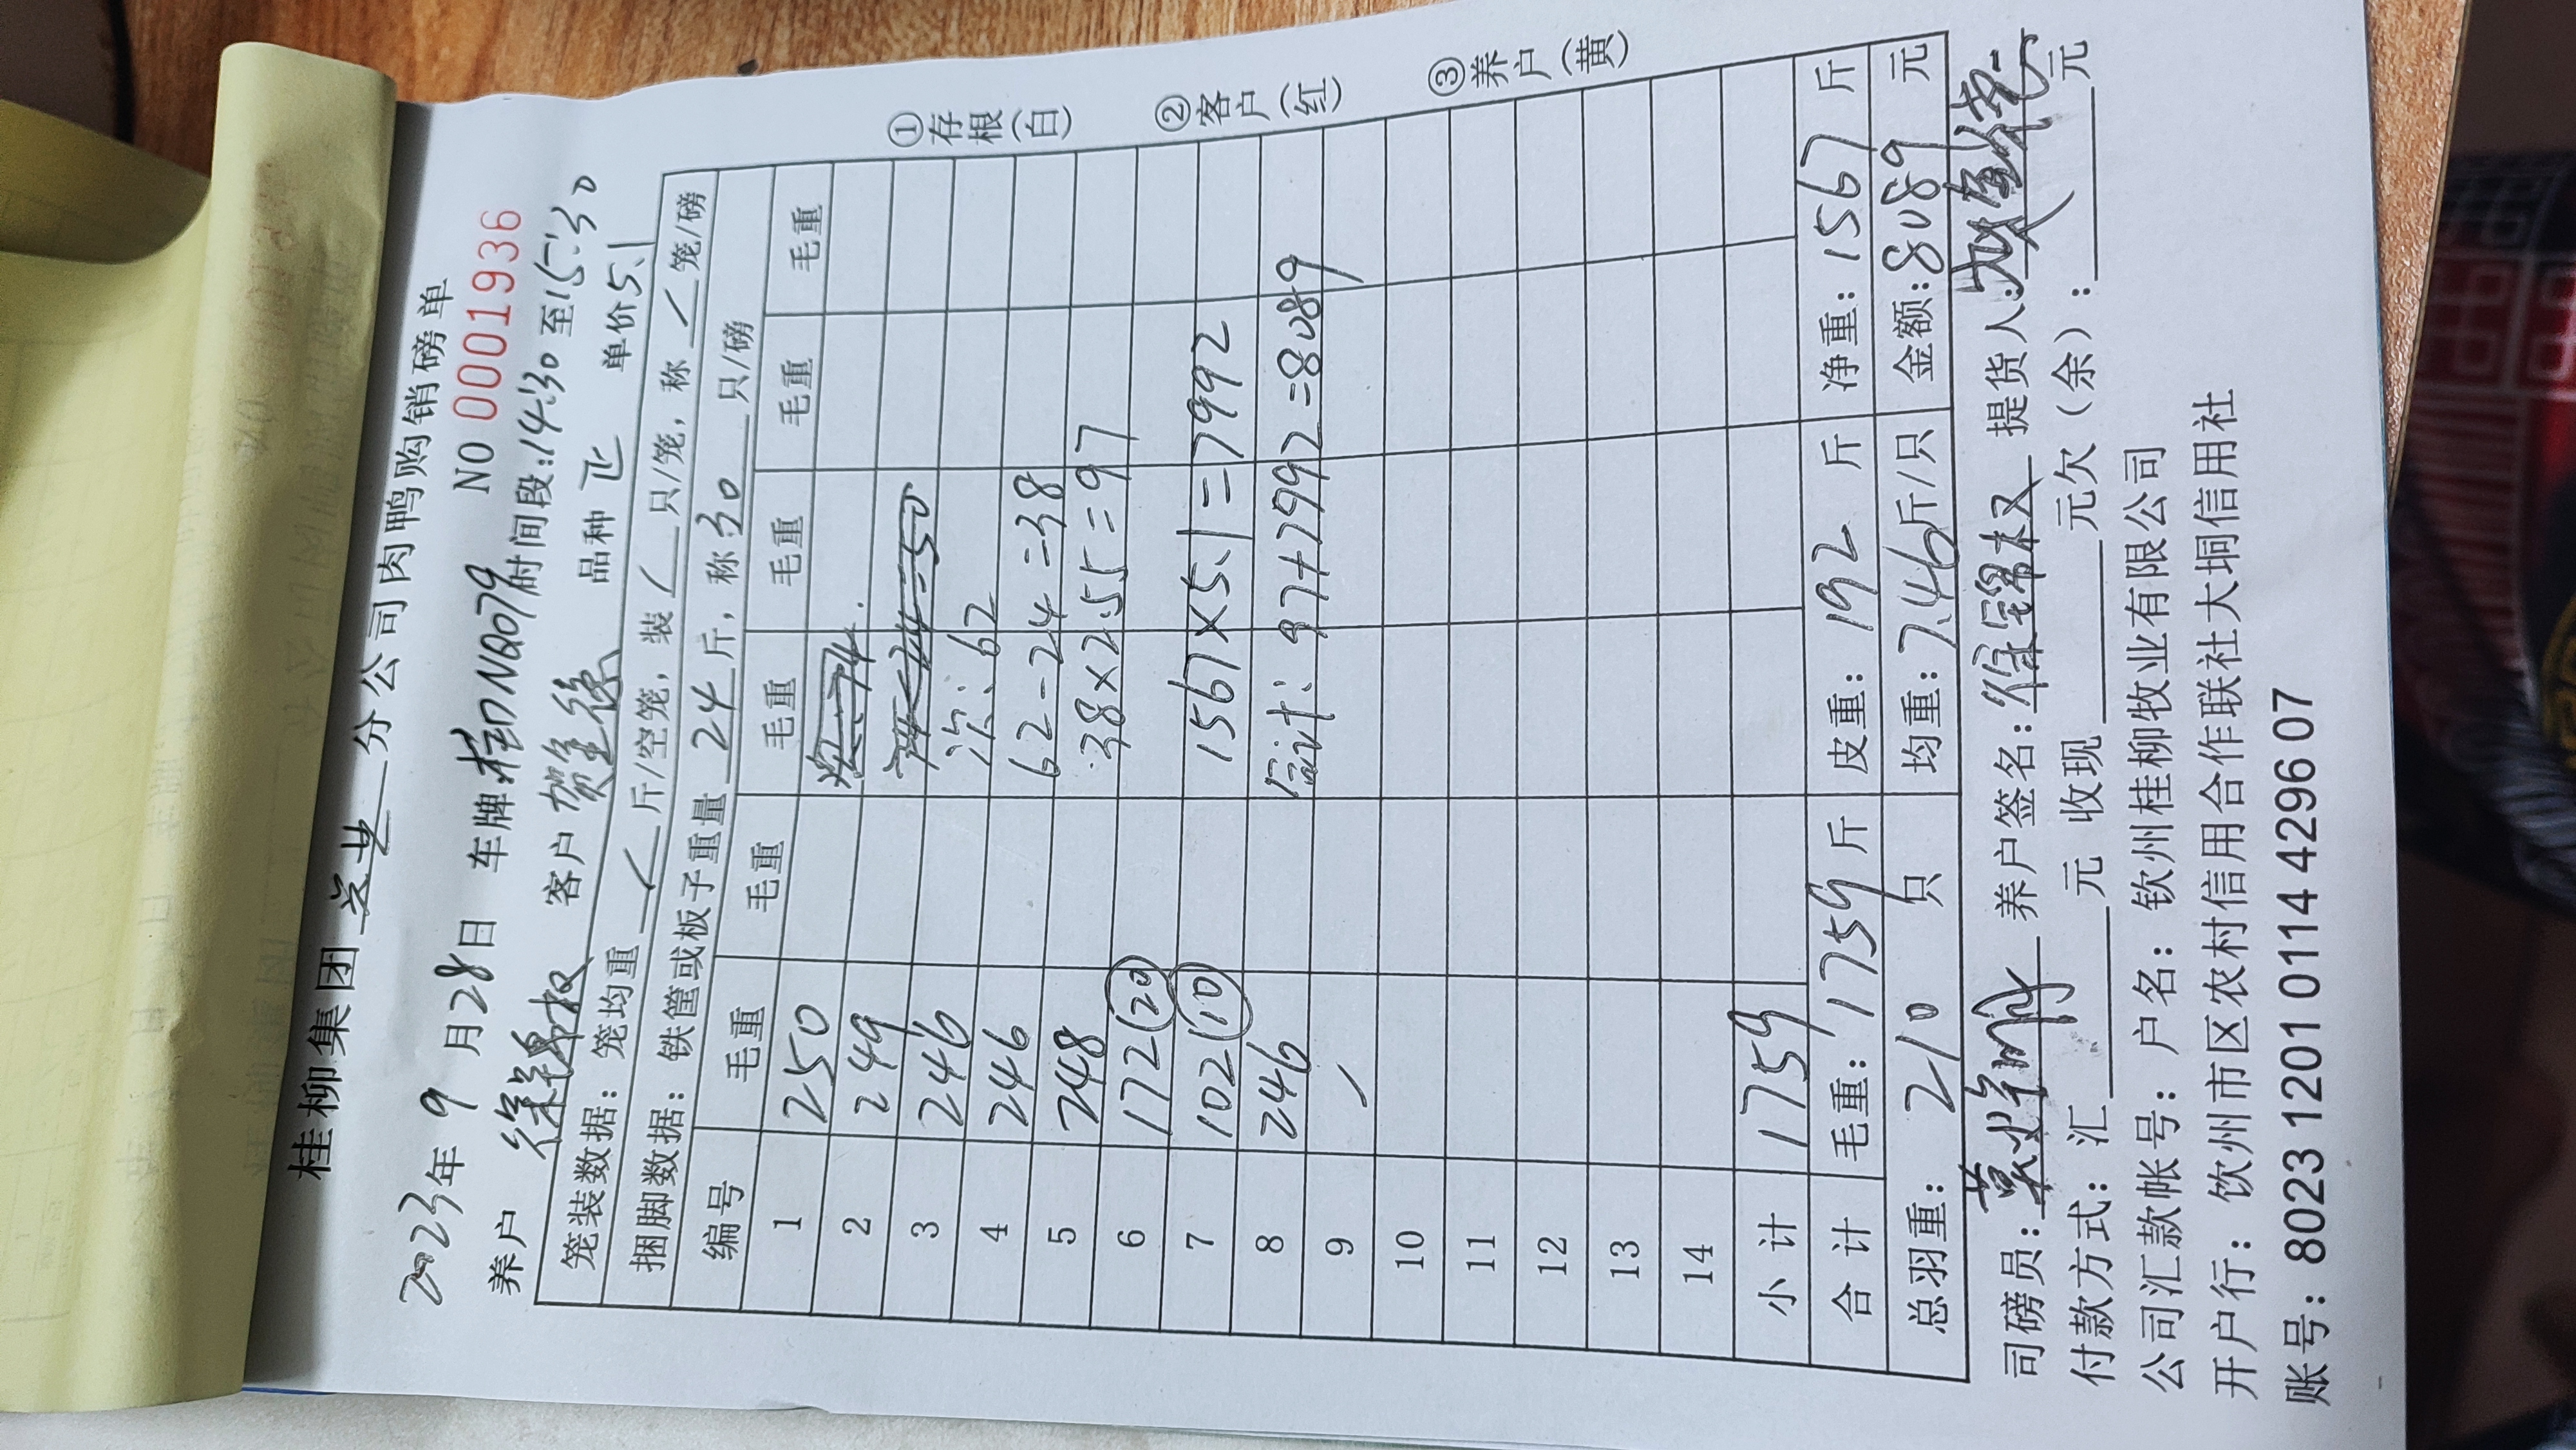 桂柳集团 分公司肉鸭购销磅单
NO 0001936
2023年9月28日 车牌:桂DNQ079 时间段:14:30至15:30
养户 客户 贺 品种 正 单价5.1
笼装数据：笼均重 / 斤/空笼，装 / 只/笼，称 / 笼/磅
捆脚数据：铁筐或板子重量 24 斤，称 30 只/磅
编号 毛重 毛重 毛重 毛重 毛重 毛重
1 250
2 249
3 246 次: 62
4 246 62-24=38
5 248 38×2.55=97
6 172 (20)
7 102 (10) 1567×5.1=7992
8 246 总计: 97+7992=8089
9 /
10
11
12
13
14
小计 1759
合计 毛重：1759斤 皮重：192斤 净重：1567斤
总羽重：210只 均重：7.46斤/只 金额：8089元
司磅员： 养户签名： 提货人：
付款方式：汇 元 收现 元欠（余）： 元
公司汇款帐号：户名：钦州桂柳牧业有限公司
开户行：钦州市区农村信用合作联社大垌信用社
账号：8023 1201 0114 4296 07
①存根（白）
②客户（红）
③养户（黄）